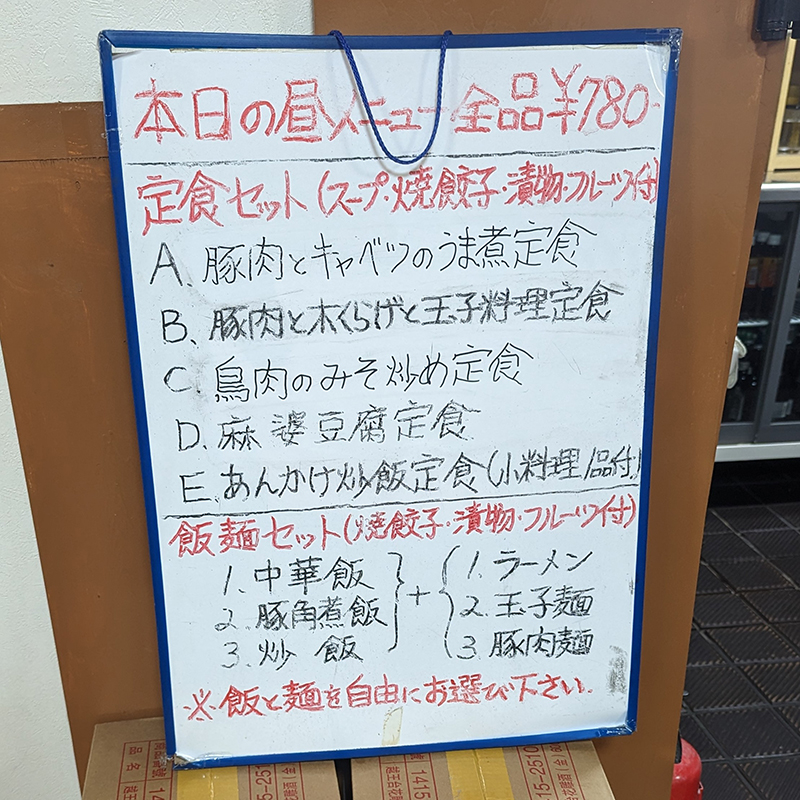 本日の昼メニュー全品¥780-
定食セット(スープ・焼餃子・漬物・フルーツ付)
A. 豚肉とキャベツのうま煮定食
B. 豚肉と木くらげと玉子料理定食
C. 鳥肉のみそ炒め定食
D. 麻婆豆腐定食
E. あんかけ炒飯定食(小料理1品付)
飯麺セット(焼餃子・漬物・フルーツ付)
1. 中華飯
2. 豚角煮飯
3. 炒飯
+
1. ラーメン
2. 玉子麺
3. 豚肉麺
※飯と麺を自由にお選び下さい.
品名
1415
15-2510
品名
1415
15-2510